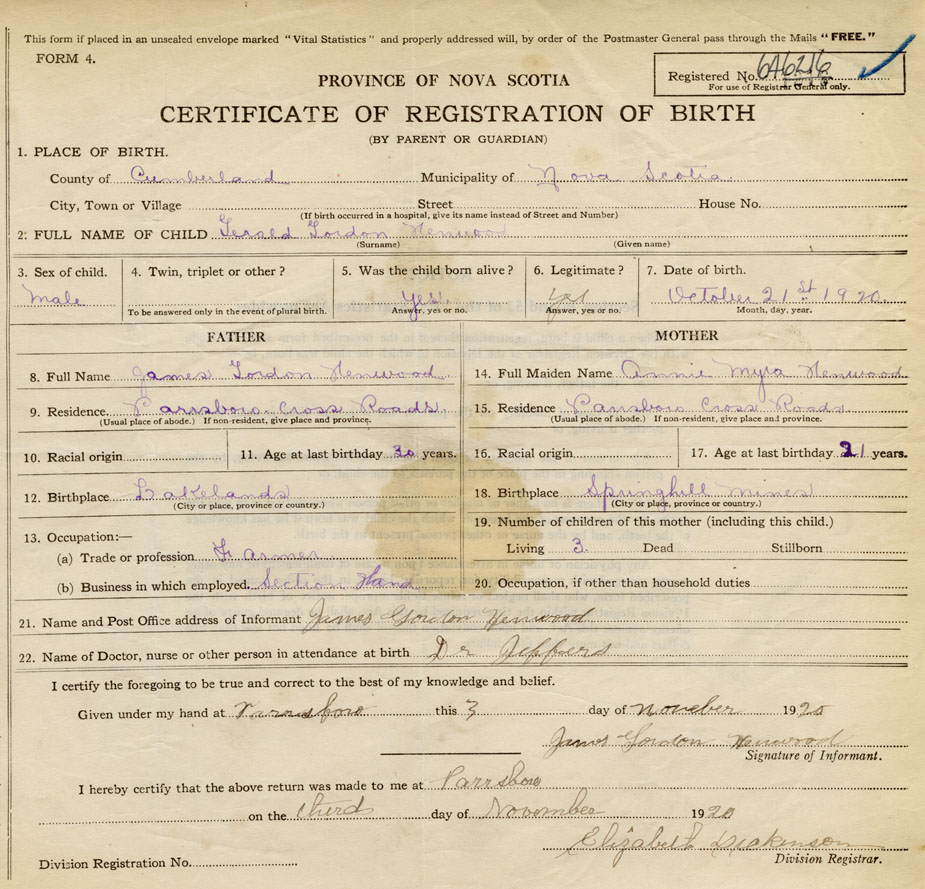 This form if placed in an unsealed envelope marked "Vital Statistics" and properly addressed will, by order of the Postmaster General pass through the Mails "FREE."
FORM 4.
Registered No. 646216
For use of Registrar General only.
PROVINCE OF NOVA SCOTIA
CERTIFICATE OF REGISTRATION OF BIRTH
(BY PARENT OR GUARDIAN)
1. PLACE OF BIRTH.
County of Cumberland Municipality of Nova Scotia
City, Town or Village Street House No.
(If birth occurred in a hospital, give its name instead of Street and Number)
2. FULL NAME OF CHILD Gerald Gordon Henwood
(Surname) (Given name)
3. Sex of child. 4. Twin, triplet or other? 5. Was the child born alive? 6. Legitimate? 7. Date of birth.
Male Yes. Yes October 21st 1920.
To be answered only in the event of plural birth. Answer, yes or no. Answer, yes or no. Month, day, year.
FATHER MOTHER
8. Full Name James Gordon Henwood 14. Full Maiden Name Annie Myra Henwood
9. Residence. Parrsboro Cross Roads. 15. Residence Parrsboro Cross Roads
(Usual place of abode.) If non-resident, give place and province. (Usual place of abode.) If non-resident, give place and province.
10. Racial origin 11. Age at last birthday 30 years. 16. Racial origin 17. Age at last birthday 21 years.
12. Birthplace Lakelands 18. Birthplace Springhill Mines
(City or place, province or country.) (City or place, province or country.)
13. Occupation:— 19. Number of children of this mother (including this child.)
(a) Trade or profession Farmer Living 3. Dead Stillborn
(b) Business in which employed. Section Hand 20. Occupation, if other than household duties
21. Name and Post Office address of Informant James Gordon Henwood
22. Name of Doctor, nurse or other person in attendance at birth Dr Jeffers
I certify the foregoing to be true and correct to the best of my knowledge and belief.
Given under my hand at Parrsboro this 3 day of Noveber 1920
James Gordon Henwood
Signature of Informant.
I hereby certify that the above return was made to me at Parrsboro
on the third day of November 1920
Elizabeth Dickinson
Division Registrar.
Division Registration No.